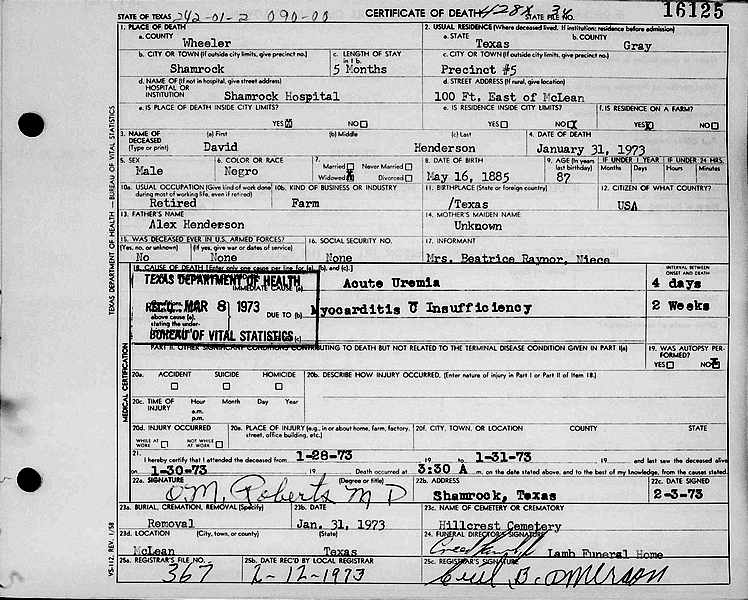 STATE OF TEXAS 242-01-2 090-00 CERTIFICATE OF DEATH 428X 34 STATE FILE NO. 16125
1. PLACE OF DEATH 2. USUAL RESIDENCE (Where deceased lived. If institution: residence before admission)
a. COUNTY a. STATE b. COUNTY
Wheeler Texas Gray
b. CITY OR TOWN (If outside city limits, give precinct no.) c. LENGTH OF STAY in 1 b. c. CITY OR TOWN (If outside city limits, give precinct no.)
Shamrock 5 Months Precinct #5
d. NAME OF (If not in hospital, give street address) HOSPITAL OR INSTITUTION d. STREET ADDRESS (If rural, give location)
Shamrock Hospital 100 Ft. East of McLean
e. IS PLACE OF DEATH INSIDE CITY LIMITS? e. IS RESIDENCE INSIDE CITY LIMITS? f. IS RESIDENCE ON A FARM?
YES X NO YES NO X YES X NO
3. NAME OF DECEASED (Type or print) (a) First (b) Middle (c) Last 4. DATE OF DEATH
David Henderson January 31, 1973
5. SEX 6. COLOR OR RACE 7. Married Never Married 8. DATE OF BIRTH 9. AGE (In years last birthday) IF UNDER 1 YEAR IF UNDER 24 HRS.
Months Days Hours Minutes
Male Negro Widowed X Divorced May 16, 1885 87
10a. USUAL OCCUPATION (Give kind of work done during most of working life, even if retired) 10b. KIND OF BUSINESS OR INDUSTRY 11. BIRTHPLACE (State or foreign country) 12. CITIZEN OF WHAT COUNTRY?
Retired Farm /Texas USA
13. FATHER'S NAME 14. MOTHER'S MAIDEN NAME
Alex Henderson Unknown
15. WAS DECEASED EVER IN U.S. ARMED FORCES? 16. SOCIAL SECURITY NO. 17. INFORMANT
(Yes, no, or unknown) (If yes, give war or dates of service)
No None None Mrs. Beatrice Raynor, Niece
18. CAUSE OF DEATH [Enter only one cause per line for (a), (b), and (c).] INTERVAL BETWEEN ONSET AND DEATH
TEXAS DEPARTMENT OF HEALTH
IMMEDIATE CAUSE (a) Acute Uremia 4 days
MAR 8 1973
above cause (a), stating the under- DUE TO (b) Myocarditis c̄ Insufficiency 2 Weeks
BUREAU OF VITAL STATISTICS (c)
PART II. OTHER SIGNIFICANT CONDITIONS CONTRIBUTING TO DEATH BUT NOT RELATED TO THE TERMINAL DISEASE CONDITION GIVEN IN PART I(a) 19. WAS AUTOPSY PERFORMED?
YES NO X
20a. ACCIDENT SUICIDE HOMICIDE 20b. DESCRIBE HOW INJURY OCCURRED. (Enter nature of injury in Part I or Part II of item 18.)
20c. TIME OF INJURY Hour Month Day Year
a.m.
p.m.
20d. INJURY OCCURRED 20e. PLACE OF INJURY (e.g., in or about home, farm, factory, street, office building, etc.) 20f. CITY, TOWN, OR LOCATION COUNTY STATE
WHILE AT WORK NOT WHILE AT WORK
21. I hereby certify that I attended the deceased from 1-28-73 19 to 1-31-73 19 and last saw the deceased alive
on 1-30-73 19 Death occurred at 3:30 A m. on the date stated above, and to the best of my knowledge, from the causes stated.
22a. SIGNATURE (Degree or title) 22b. ADDRESS 22c. DATE SIGNED
O.M. Roberts M D Shamrock, Texas 2-3-73
23a. BURIAL, CREMATION, REMOVAL (Specify) 23b. DATE 23c. NAME OF CEMETERY OR CREMATORY
Removal Jan. 31, 1973 Hillcrest Cemetery
23d. LOCATION (City, town, or county) (State) 24. FUNERAL DIRECTOR'S SIGNATURE
McLean Texas Lamb Funeral Home
25a. REGISTRAR'S FILE NO. 25b. DATE REC'D BY LOCAL REGISTRAR 25c. REGISTRAR'S SIGNATURE
367 2-12-1973
TEXAS DEPARTMENT OF HEALTH — BUREAU OF VITAL STATISTICS
MEDICAL CERTIFICATION
VS-112 REV. 1/58